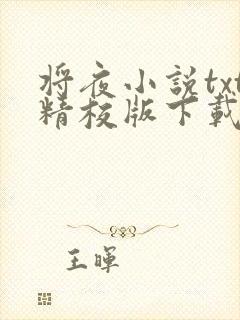 将夜小説txt
精校版下載
王暉